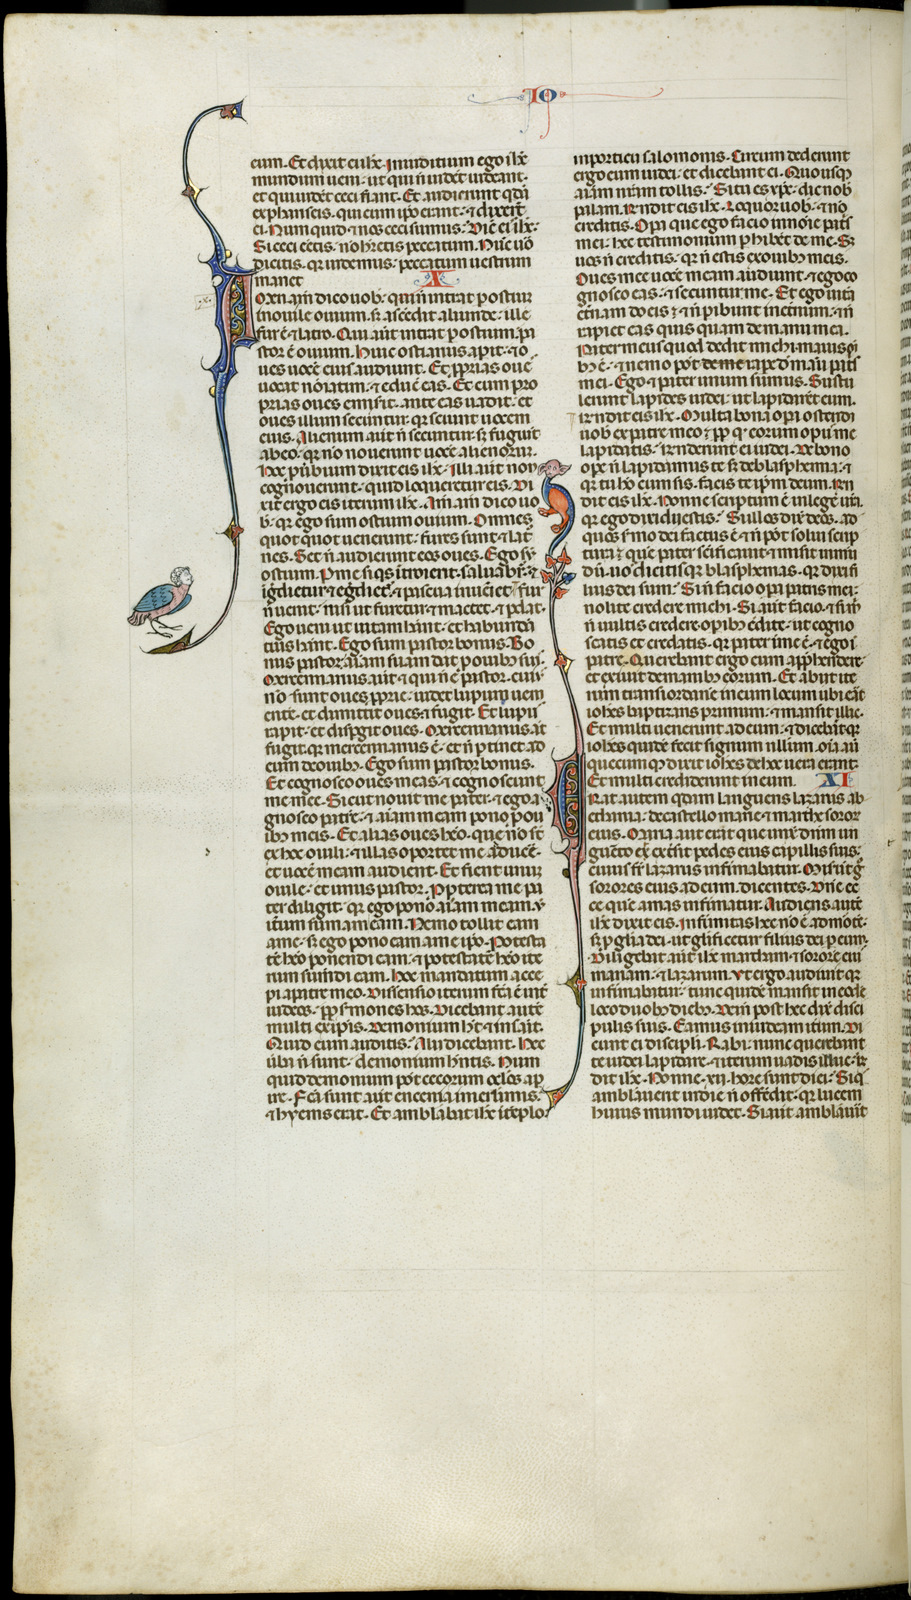 IO
eum. Et dixit ei ihc̄. In iuditium ego ī hc̄
mundum ueni. ut qui ñ uidēt uideant.
et qui uidēt ceci fiant. Et audierunt qdā
ex phariseis. qui cum ip̄o erant. ⁊ dixerūt
ei. Num quid ⁊ nos ceci sumus. Dix̄ eis ihc̄.
Si ceci eētis. nō hr̄etis peccatum. Nūc uō
dicitis. qr uidemus. peccatum uestrum
manet X
am̄ am̄ dico uob̄. qui ñ intrat p ostium
in ouile ouium. s; ascēdit aliunde. ille
fur ē ⁊ latro. Qui aūt intrat p ostium. pa
stor ē ouium. Huic ostiarius apit. ⁊ o
ues uocē eius audiunt. Et pprias oues
uocat nōīatim. ⁊ educ̄ eas. Et cum pro
prias oues emisit. ante eas uadit. et
oues illum secuntur. qr sciunt uocem
eius. Alienum aūt ñ secuntur. s; fugiūt
ab eo. qr nō nouerunt uocē alienorum.
Hoc puerbium dixit eis ihc̄. Illi aūt non
cognouerunt. quid loqueretur eis. Di
xit ergo eis iterum ihc̄. Am̄ am̄ dico uo
b̄. qr ego sum ostium ouium. Omnes
quot quot uenerunt. fures sunt ⁊ latro
nes. Set ñ audierunt eos oues. Ego sū
ostium. P me si qs itroierit. saluabit̄. ⁊
īgdietur ⁊ egdiet̄. ⁊ pascua inueniet. Fur
ñ uenit. nisi ut furetur ⁊ mactet. ⁊ pdat.
Ego ueni ut uitam hānt. et habundā
tius hānt. Ego sum pastor bonus. Bo
nus pastor aīam suam dat p ouib; suis.
Mercennarius aūt ⁊ qui ñ ē pastor. cuius
nō sunt oues pprie. uidet lupum ueni
ente. et dimittit oues. ⁊ fugit. Et lupus
rapit. et dispgit oues. Mercennarius aūt
fugit. qr mercennarius ē. et ñ ptinet ad
eum de ouib;. Ego sum pastor bonus.
Et cognosco oues meas. ⁊ cognoscunt
me mee. Sicut nouit me pater. ⁊ ego a
gnosco patrē. ⁊ aīam meam pono p oui
ib; meis. Et alias oues hēo. que nō st̄
ex hoc ouili. ⁊ illas oportet me adducē.
et uocē meam audient. Et fient unum
ouile. et unus pastor. Ppterea me pa
ter diligit. qr ego pono aīam meam. ut
itum sumam eam. Nemo tollit eam
a me. s; ego pono eam a me ip̄o. Potesta
tē hēo ponendi eam. ⁊ potestatē hēo ite
rum sumdi eam. Hoc mandatum acce
pi a patre meo. Dissensio iterum fc̄a ē int
iudeos. pp sermones hos. Dicebant aūt
multi ex ipis. Demonium ht ⁊ insanit.
Quid eum auditis. Alii dicebant. Hec
ūba ñ sunt demonium hn̄tis. Num
quid demonium pōt cecorum oclos ap
ire. Fc̄a sunt aūt encenia in ierlimis.
⁊ hyems erat. Et amblabat ihc̄ i teplo
in porticu salomonis. Circum dederunt
ergo eum iudei. et dicebant ei. Quo usq;
aīam nr̄am tollis. Si tu es xp̄c. dic nob̄
palam. Rn̄dit eis ihc̄. Loquor uob̄. ⁊ nō
creditis. Opa que ego facio in nōie patris
mei. hec testimonium phibēt de me. S;
uos ñ creditis. qr ñ estis ex ouib; meis.
Oues mee uocē meam audiunt. ⁊ ego co
gnosco eas. ⁊ secuntur me. Et ego uitā
etnam do eis. ⁊ ñ pibunt in etnum. ⁊ ñ
rapiet eas quis quam de manu mea.
Pater meus quod dedit michi. maius oī
b; ē. ⁊ nemo pōt de me rape de manu patris
mei. Ego ⁊ pater unum sumus. Sustu
lerunt lapides iudei. ut lapidarēt eum.
Rn̄dit eis ihc̄. Multa bona opa ostendi
uob̄ ex patre meo. ⁊ pp qd eorum opus me
lapidatis. Rn̄derunt ei iudei. De bono
ope ñ lapidamus te s; de blasphemia. ⁊
qr tu hō cum sis. facis te ipm deum. Rn̄
dit eis ihc̄. Nonne scriptum ē in lege ur̄a.
qr ego dixi dii estis. Si illos dix̄ deos. ad
quos sermo dei factus ē. ⁊ ñ pōt solui scrip
tura. que pater scīficauit ⁊ misit in mū
dū. uos dicitis qr blasphemas. qr dixi fi
lius dei sum. Si ñ facio opa patris mei.
nolite credere michi. Si aūt facio. ⁊ si m̄
ñ uultis credere. opib; cedite. ut cogno
scatis et credatis. qr pater in me ē. ⁊ ego i
patre. Querebant ergo eum apphendere.
et exiuit de manib; eorum. Et abiit ite
rum trans iordanē in eum locum ubi eāt
iohēs baptizans primum. ⁊ mansit illic.
Et multi uenerunt ad eum. ⁊ dicebāt qr
iohēs quidē fecit signum nullum. oīa aūt
quecumq; dixit iohēs de hoc uera erant.
Et multi crediderunt in eum. XI
Erat autem qdam languens lazarus ab
ethania. de castello marie ⁊ marthe soror
eius. Maria aūt erat que unxit dn̄m un
guēto ⁊ extsit pedes eius capillis suis.
cuius fr lazarus infirmabatur. Misert g
sorores eius ad eum. dicentes. Dn̄e ec
ce que amas infirmatur. Audiens autē
ihc̄ dixit eis. Infirmitas hec nō ē ad mortē.
s; p glia dei. ut glificetur filius dei p eum.
Diligebat aūt ihc̄ martham. ⁊ sororē eius
mariam. ⁊ lazarum. Ut ergo audiuit qr
infirmabatur. tunc quidē mansit in eodē
loco duob; dieb;. Dein post hec dix̄ disci
pulis suis. Eamus in iudeam itum. Di
cunt ei discipli. Rabi. nunc querebant
te iudei lapidare. ⁊ iterum uadis illuc. Rn̄
dit ihc̄. Nonne .xii. hore sunt diei. Si qs
amblauerit in die ñ offēdit. qr lucem
huius mundi uidet. Si aūt amblauit